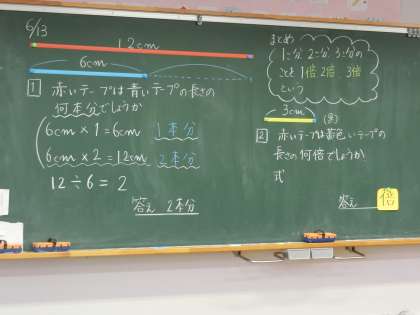 6/13
12cm
6cm
1 赤いテープは青いテープの長さの
何本分でしょうか
6cm × 1 = 6cm 1本分
6cm × 2 = 12cm 2本分
12÷6=2
答え 2本分
まとめ
1こ分、2こ分、3こ分の
ことを1倍、2倍、3倍
という
3cm
(黄)
2 赤いテープは黄色いテープの
長さの何倍でしょうか
式
答え
倍